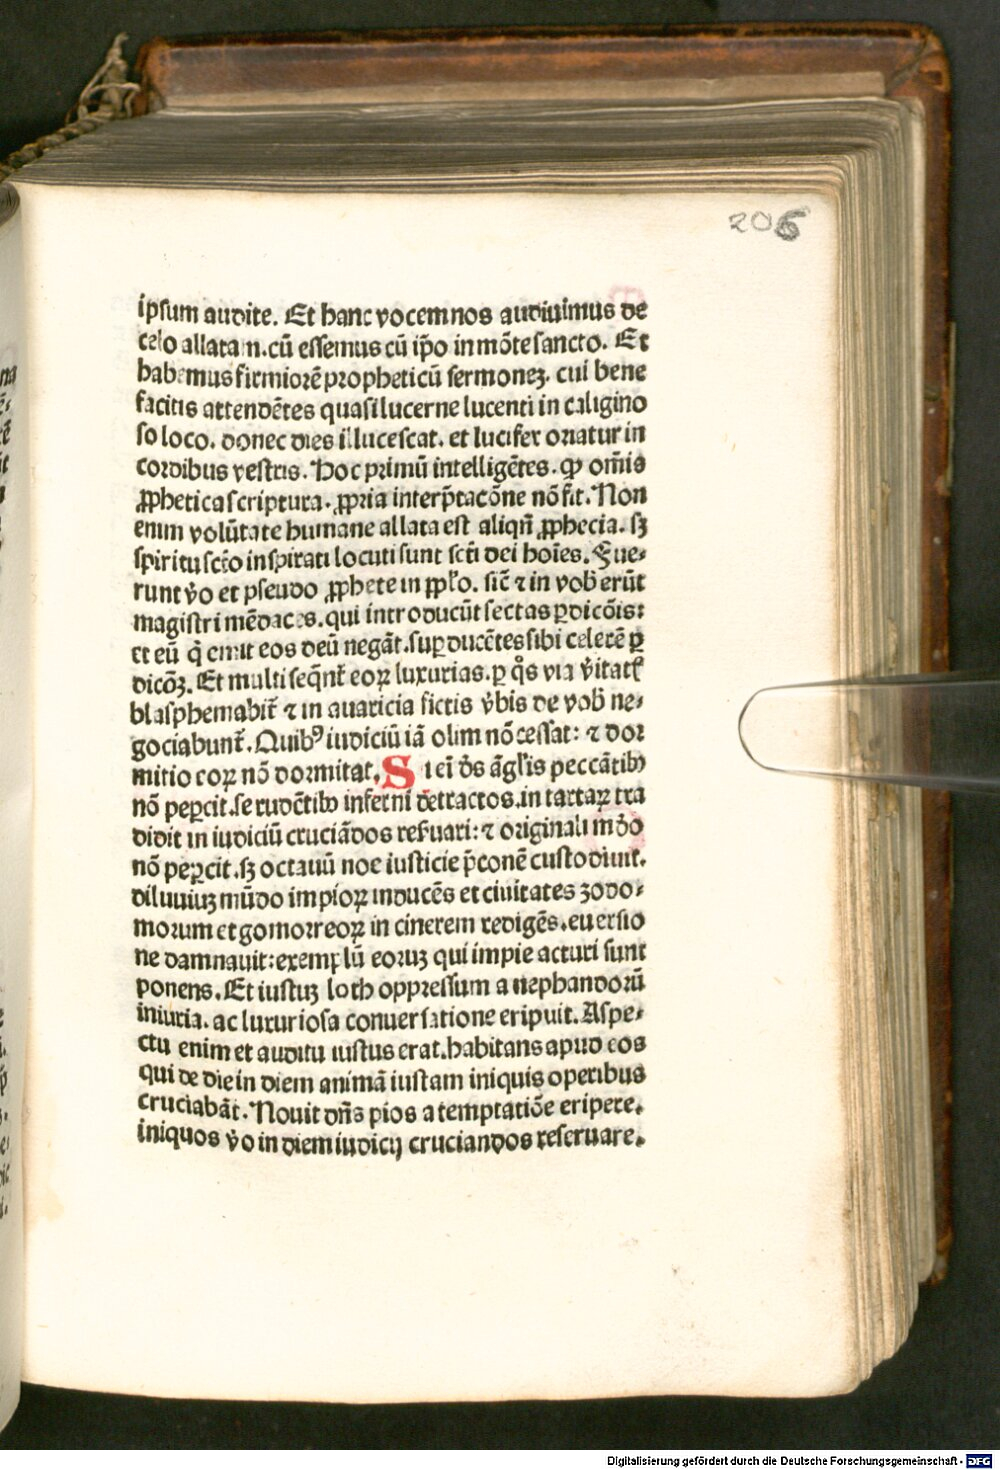 206
ipsum audite. Et hanc vocem nos audiuimus de
celo allatam. cū essemus cū ip̄o in mōte sancto. Et
habemus firmiorē propheticū sermonez. cui bene
facitis attendētes quasi lucerne lucenti in caligino
so loco. donec dies illucescat. et lucifer oriatur in
cordibus vestris. Hoc primū intelligētes. ꝙ om̄is
ꝓphetica scriptura. ꝓpria interp̄tacōne nō fit. Non
enim volūtate humane allata est aliqn̄ ꝓphecia. sꝫ
spiritu scō inspirati locuti sunt scti dei hoīes. Fue-
runt v̄o et pseudo ꝓphete in ppl̄o. sic̄ ⁊ in vob̄ erūt
magistri mēdaces. qui introducūt sectas ꝑdicōis:
et eū q̄ emit eos deū negāt. suꝑducētes sibi celerē ꝑ
dicōꝫ. Et multi seqn̄t̄ eoꝝ luxurias. ꝑ qͦs via v̄itatꝭ
blasphemabit̄ ⁊ in auaricia fictis v̄bis de vob̄ ne-
gociabunt̄. Quibꝰ iudiciū iā olim nō cessat: ⁊ dor
mitio eoꝝ nō dormitat. Si ei̅ d̄s āgl̄is peccātibꝫ
nō peꝑcit. se rudētibꝫ inferni detractos. in tartaꝝ tra
didit in iudiciū cruciādos reẜuari: ⁊ originali mūdo
nō peꝑcit. sꝫ octauū noe iusticie p̄conē custodiuit.
diluuiuꝫ mūdo impioꝝ inducēs et ciuitates zodo-
morum et gomorreoꝝ in cinerem redigēs. euersio
ne damnauit: exemplū eoruꝫ qui impie acturi sunt
ponens. Et iustuꝫ loth oppressum a nephandorū
iniuria. ac luxuriosa conuersatione eripuit. Aspe-
ctu enim et auditu iustus erat. habitans apud eos
qui de die in diem animā iustam iniquis operibus
cruciabāt. Nouit dn̄s pios a temptatiōe eripere.
iniquos v̄o in diem iudicij cruciandos reseruare.
Digitalisierung gefördert durch die Deutsche Forschungsgemeinschaft - DFG